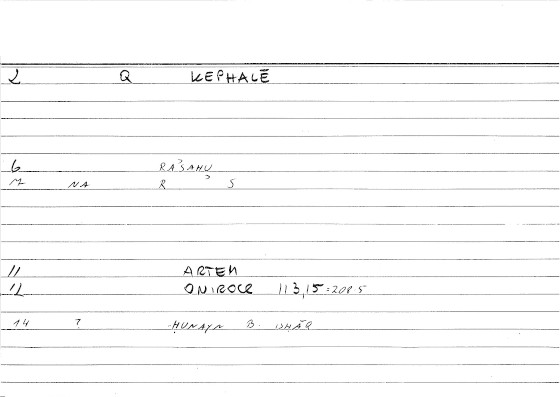 2 Q KEPHALĒ
6 RAʾSAHU
M NA R ʾ S
11 ARTEM
12 ONIROCR 113,15 =208 5
14 ? ḤUNAYN B. ISḤĀQ